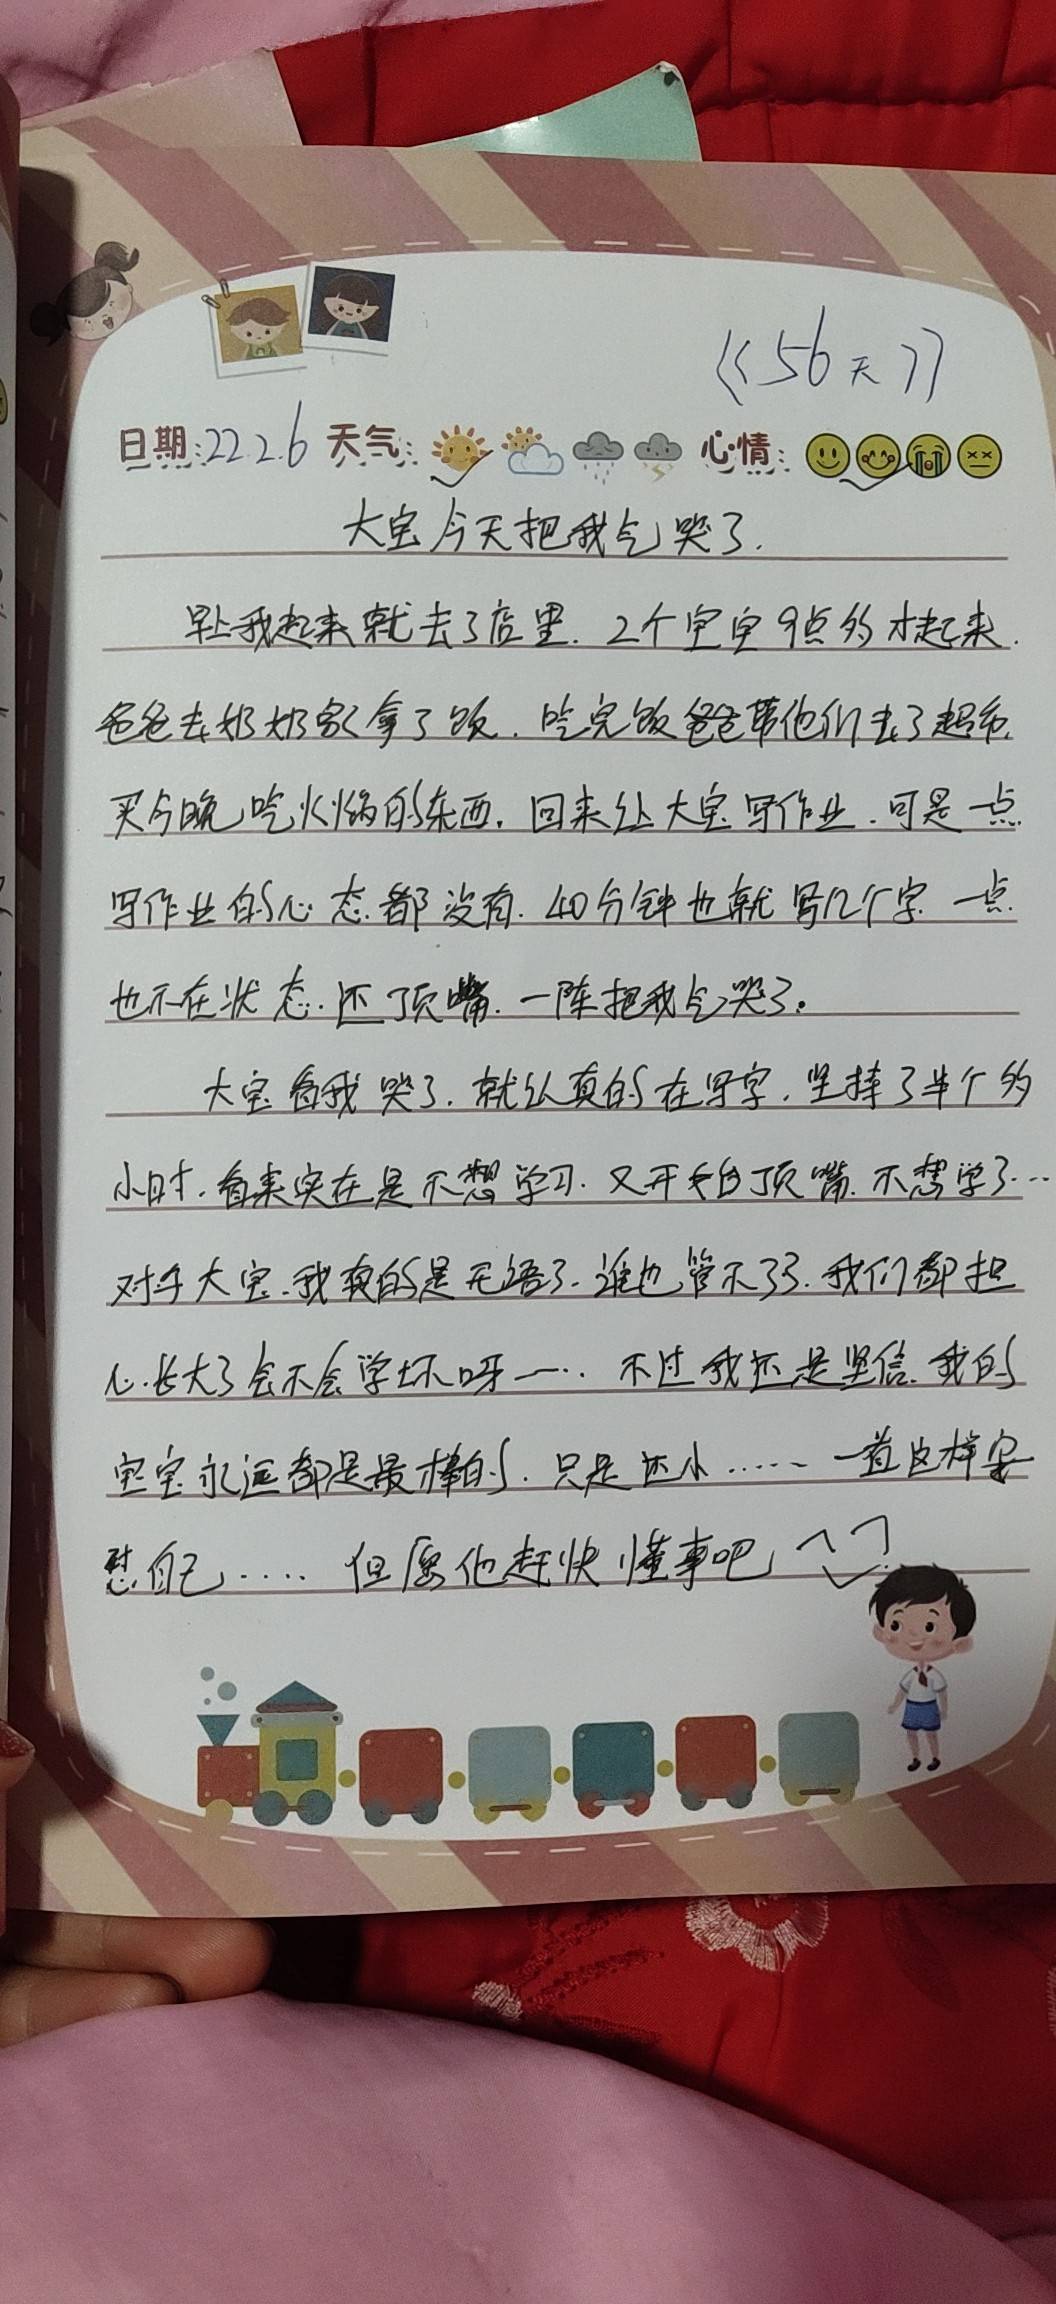 《《56天》》
日期:22.2.6 天气: 心情:
大宝今天把我气哭了.
早上我起来就去了店里.2个宝宝9点多才起来.
爸爸去奶奶家拿了饭.吃完饭爸爸带他们去了超市.
买今晚吃火锅的东西.回来让大宝写作业.可是一点
写作业的心态都没有.40分钟也就写几个字.一点
也不在状态.还顶嘴.一阵把我气哭了。
大宝看我哭了.就认真的在写字.坚持了半个多
小时.看来实在是不想学习.又开始顶嘴.不想学了…
对于大宝.我真的是无语了.谁也管不了了.我们都担
心.长大了会不会学坏呀一… 不过我还是坚信.我的
宝宝永远都是最棒的.只是还小…… 一直这样安
慰自己…. 但愿他赶快懂事吧